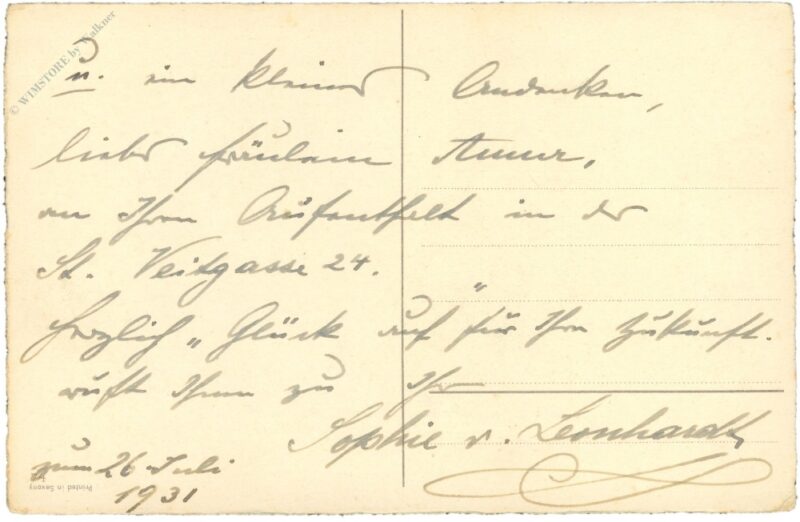 © WIMSTORE by Walkner
u. ein kleines Andenken,
liebes Fräulein Anner,
an Ihren Aufenthalt in der
St. Veitgasse 24.
Herzlich „Glück auf" für Ihre Zukunft.
ruft Ihnen zu Ihre
Sophie v. Leonhardt
zum 26 Juli
1931
Printed in Saxony